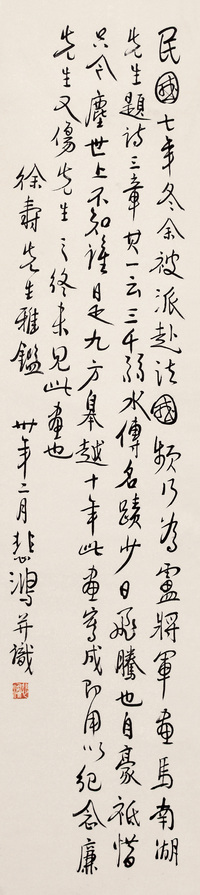 民國七年冬余被派赴法國瀕行為盧將軍畫馬南湖
先生題詩三章其一云三千弱水傳名蹟少日飛騰也自豪祇惜
只今塵世上不知誰是九方皋越十年此畫寫成即用以紀念廉
先生又傷先生之終未見此畫也
徐壽先生雅鑑
卅年二月悲鴻并識